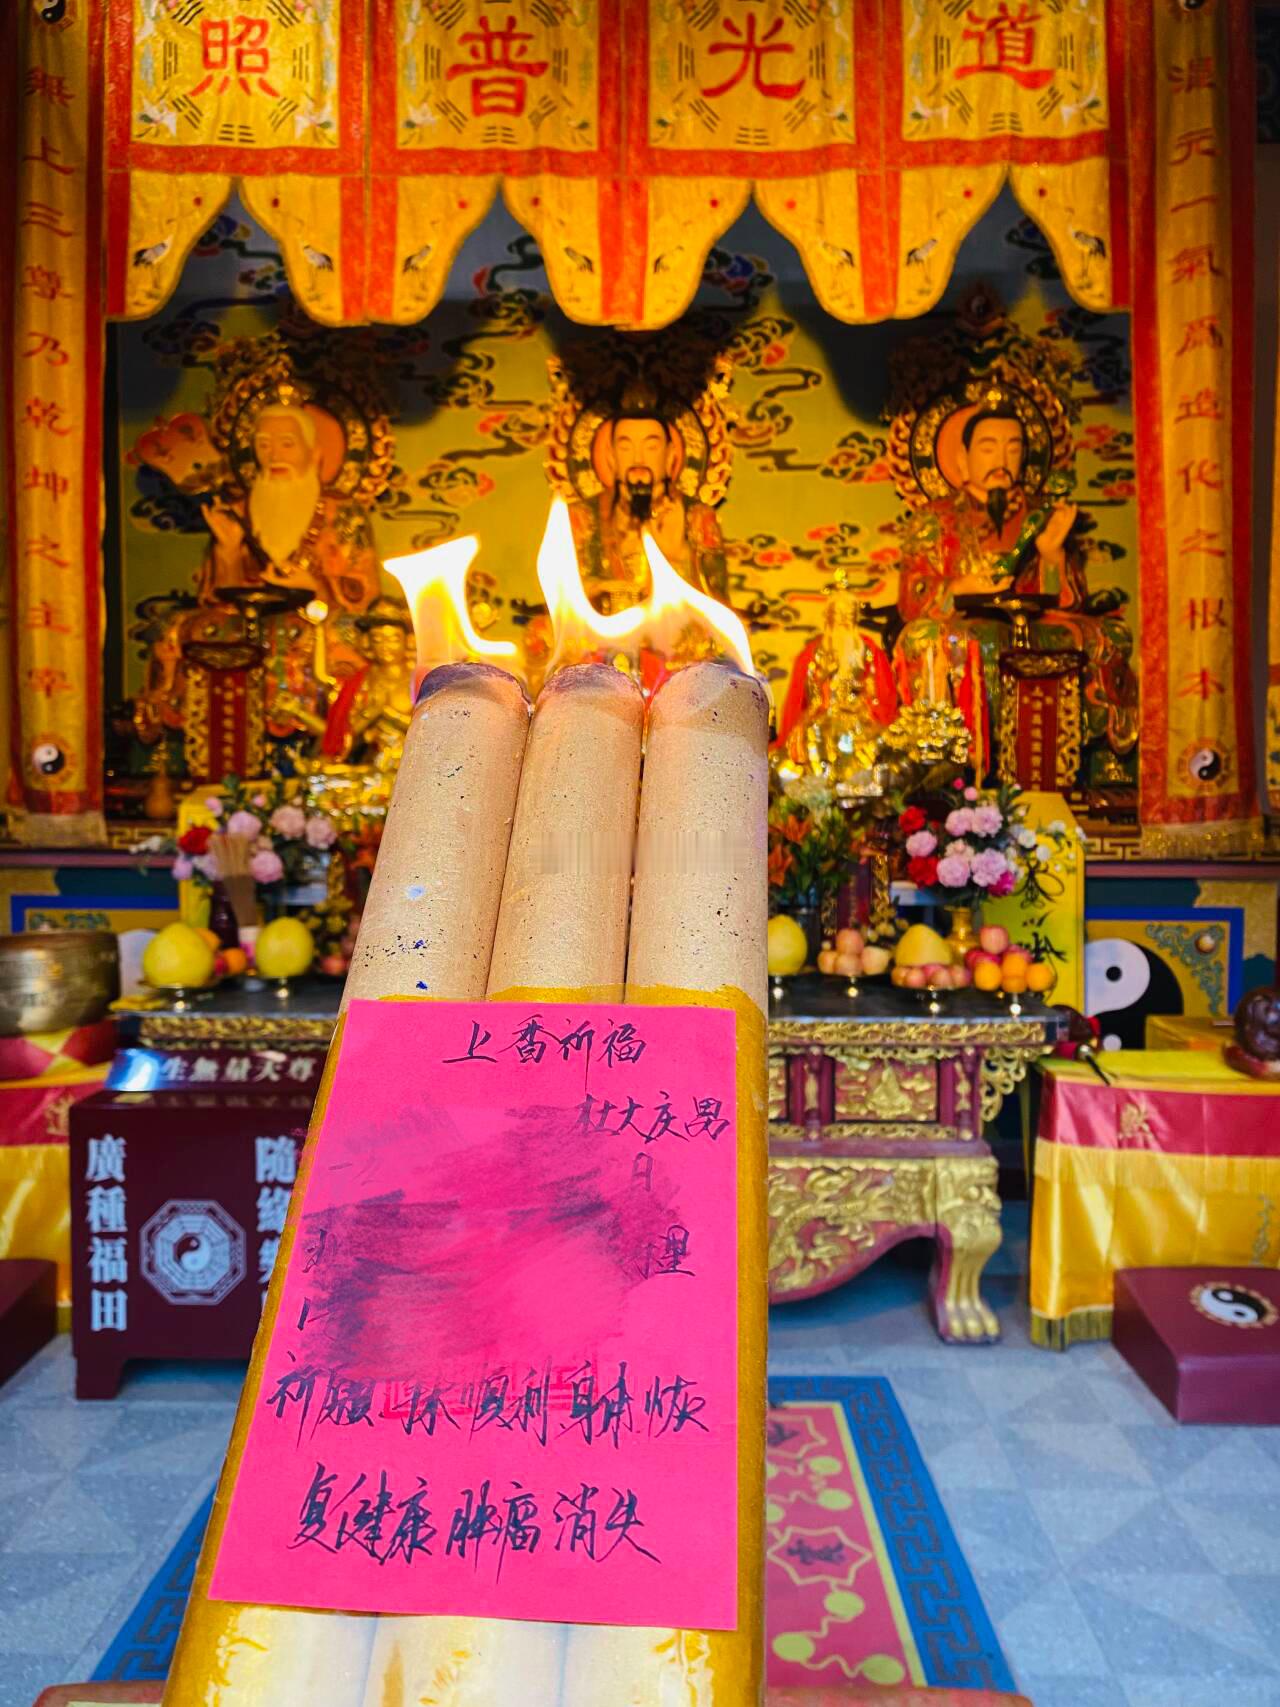 道光普照
混元一氣爲造化之根本
無上三尊乃乾坤之主宰
上香祈福
杜大庆男
日
理
祈願 手术顺利身体恢
复健康肿瘤消失
生無量天尊
廣種福田
隨緣